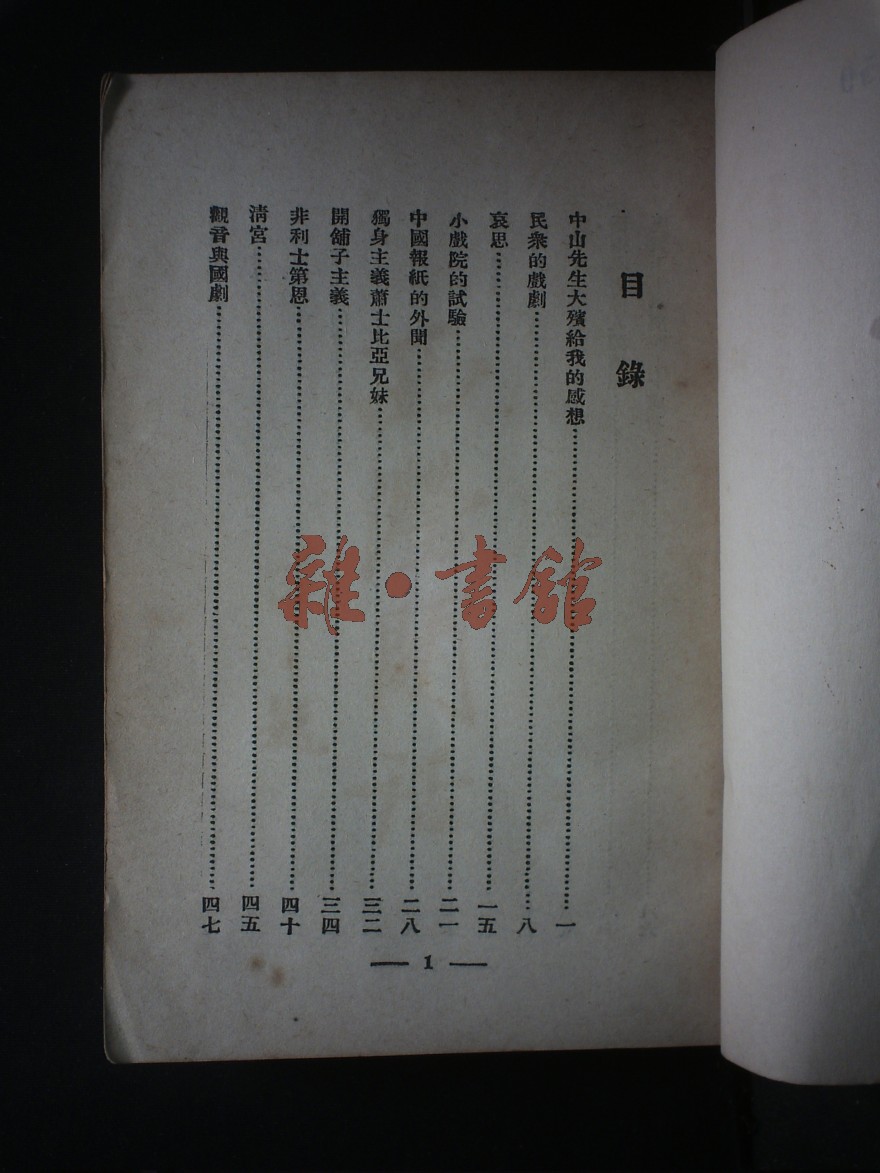 目錄
中山先生大殯給我的感想……一
民衆的戲劇……八
哀思……一五
小戲院的試驗……二一
中國報紙的外聞……二八
獨身主義蕭士比亞兄妹……三二
開舖子主義……三四
非利士第恩……四十
淸宮……四五
觀音與國劇……四七
— 1 —
雜·書館